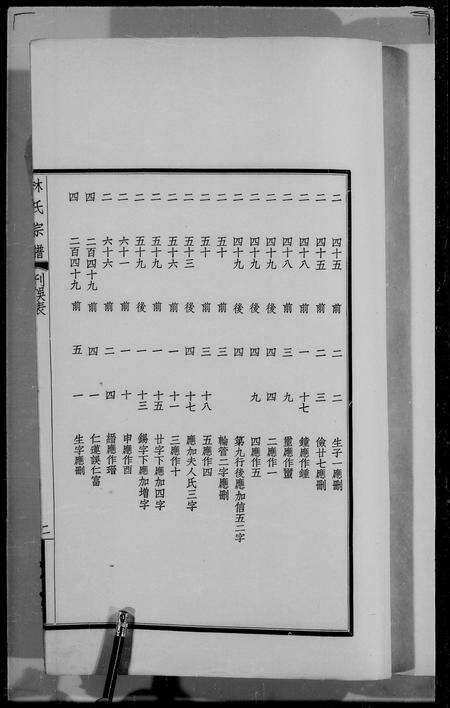 二 四十五 前 二 二 生子一應刪
二 四十五 前 二 三 儉廿七應刪
二 四十八 前 一 十七 鐘應作鍾
二 四十八 前 三 九
二 四十九 後 四 四 二應作一
二 四十九 後 四 九 四應作五
二 四十九 後 四 第九行後應加信五二字
二 五十 前 三 輪管二字應刪
二 五十 前 三 十八 五應作四
二 五十三 後 四 十七 應加夫人氏三字
二 五十六 前 一 十一 三應作十
二 五十九 前 一 十五 廿字下應加四字
二 五十九 後 一 十三 錫字下應加增字
二 六十一 前 一 十 申應作酉
二 六十六 前 二 四 縉應作瑨
四 二百四十九 前 四 一 仁蓮誤仁富
四 二百四十九 前 五 一 生字應刪
林氏宗譜 刊誤表 二